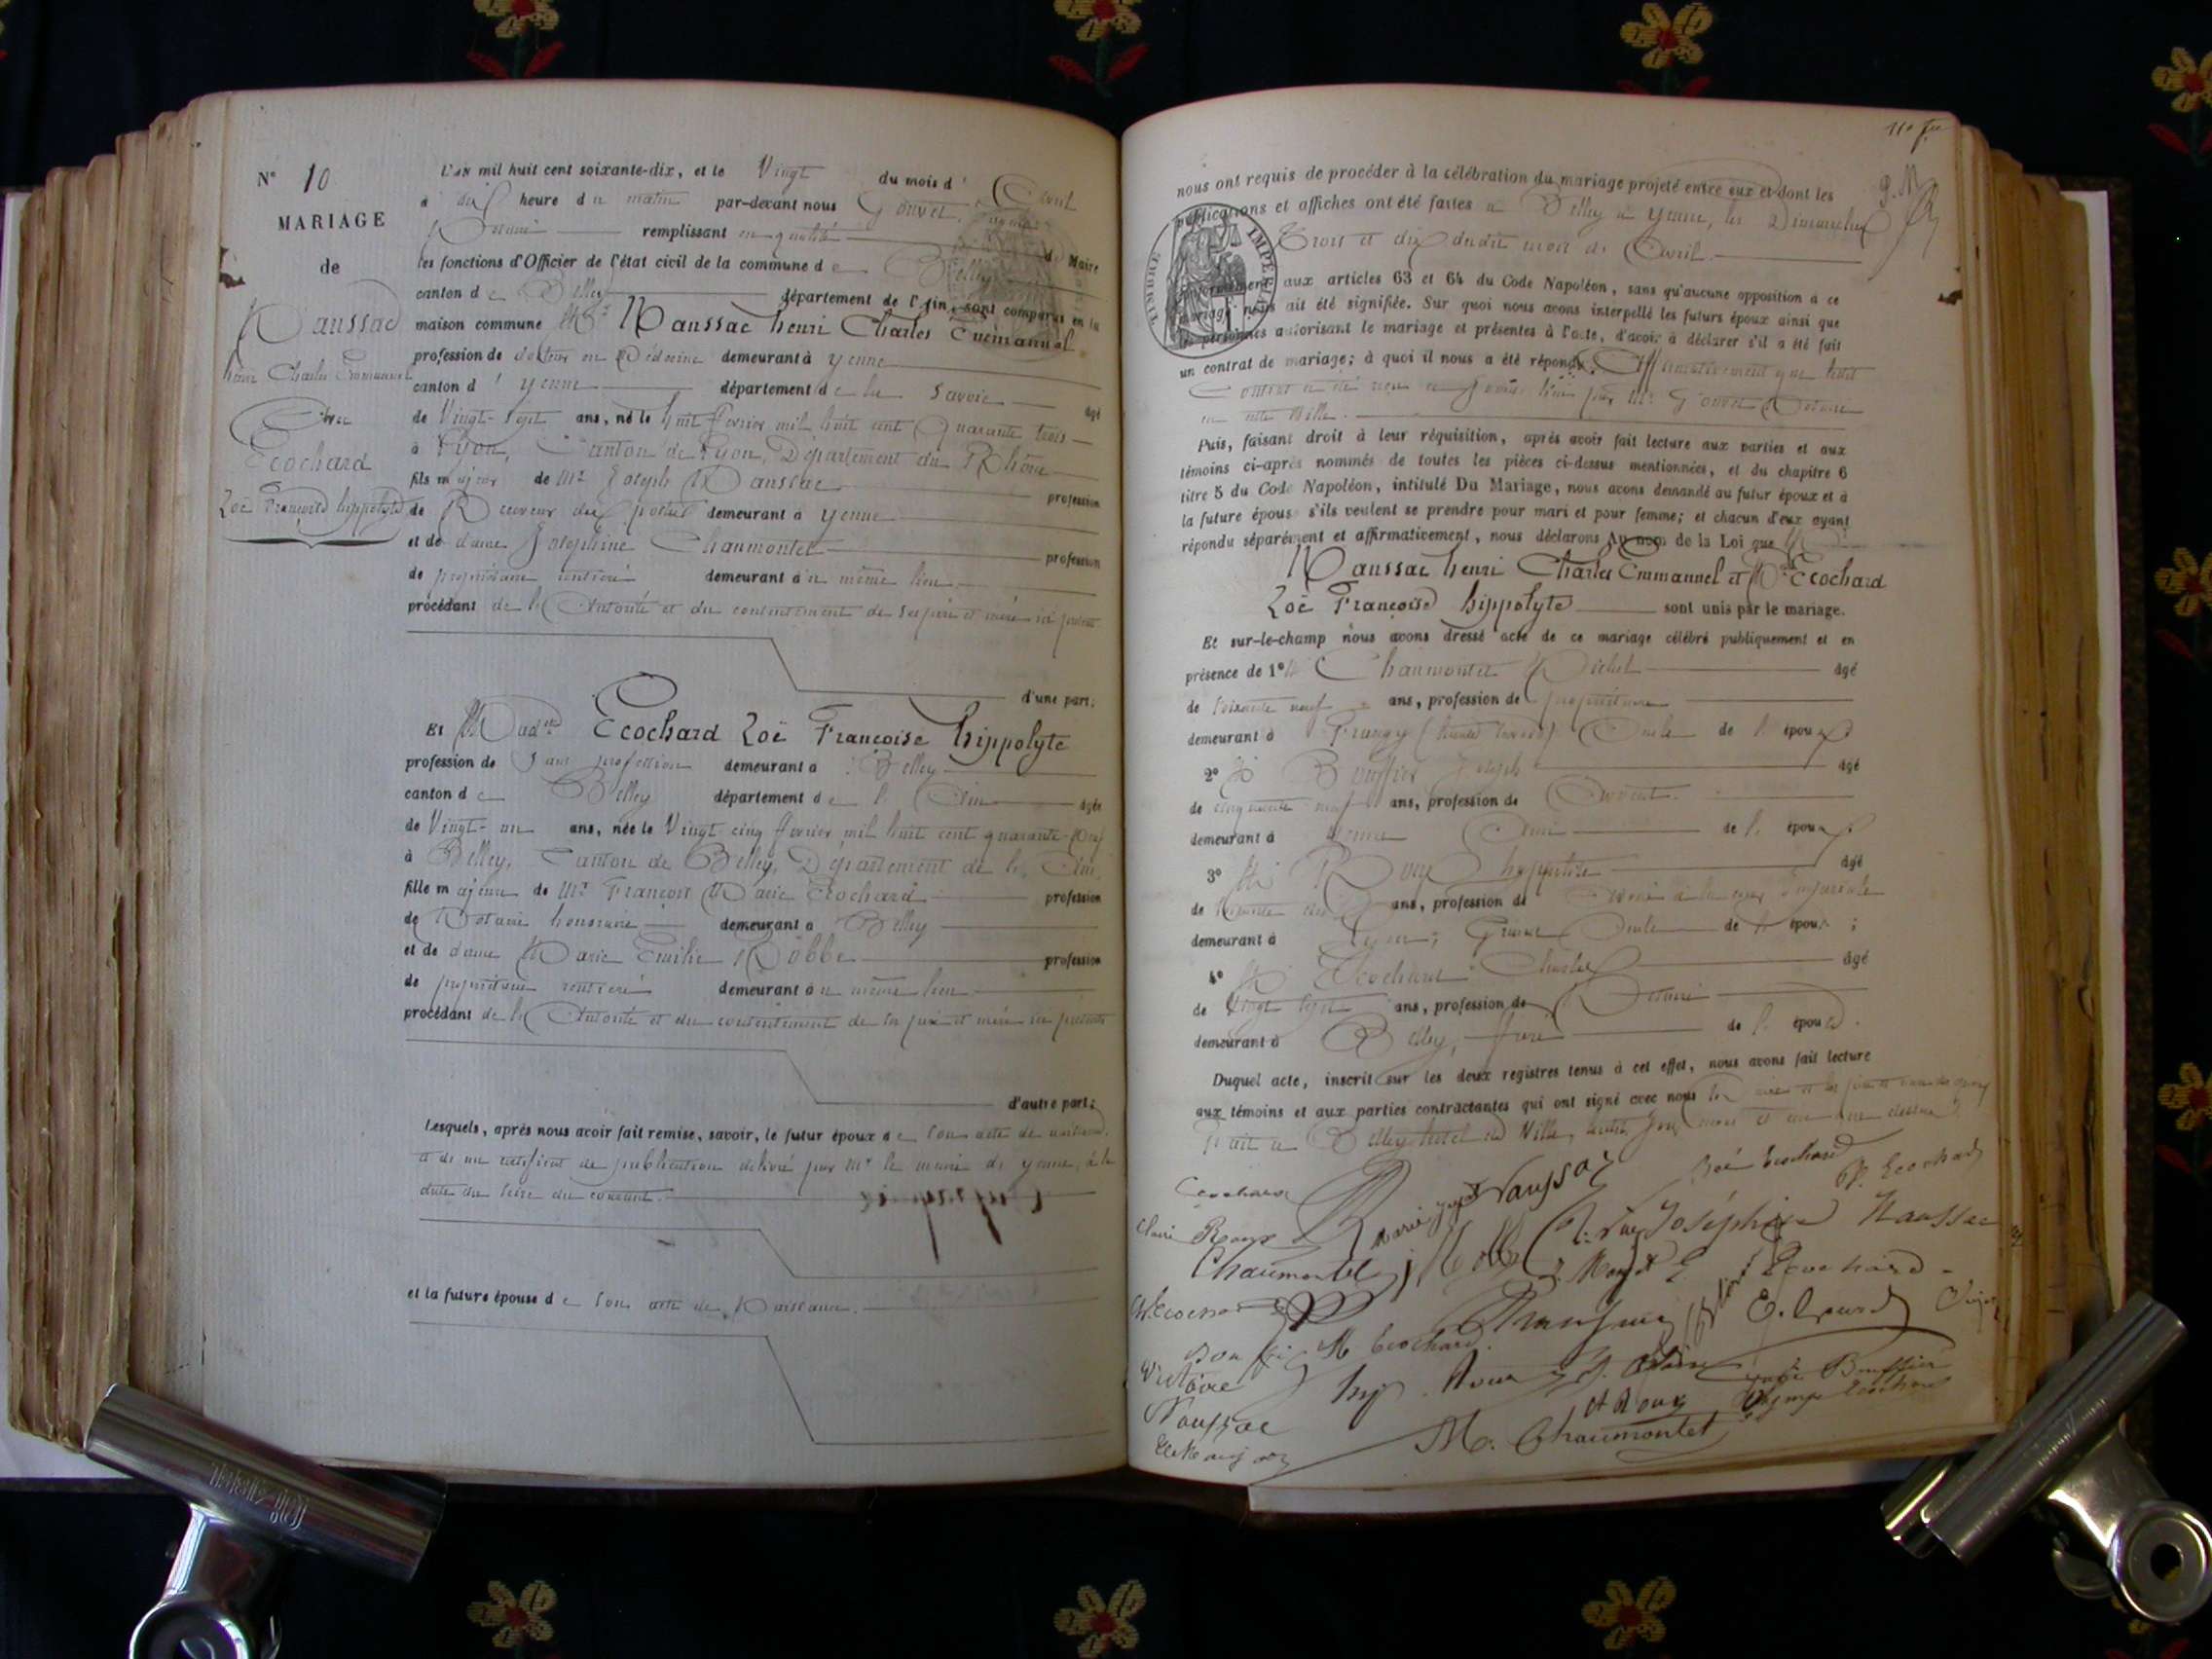 N° 10
MARIAGE
de
Naussac
henri Charles Emmanuel
Avec
Ecochard
Zoë Françoise hippolyte
L'an mil huit cent soixante-dix, et le Vingt du mois d' Avril
à dix heure du matin par-devant nous Gouvet,
Notaire remplissant en qualité de Maire
les fonctions d'Officier de l'état civil de la commune de Belley
canton de Belley département de l'Ain, sont comparus en la
maison commune Mr Naussac henri Charles Emmanuel
profession de docteur en Médecine demeurant à yenne
canton d' yenne département de la Savoie âgé
de Vingt-sept ans, né le huit février mil huit cent quarante trois
à Lyon, Canton de Lyon, Département du Rhône
fils majeur de Mr Joseph Naussac profession
de Receveur des postes demeurant à yenne
et de dame Joséphine Chaumontet profession
de propriétaire rentière demeurant au même lieu
procédant de l'Autorité et du consentement de ses père et mère ici présents
d'une part;
Et Madlle Ecochard Zoë Françoise hippolyte
profession de sans profession demeurant à Belley
canton de Belley département de l'Ain âgée
de Vingt-un ans, née le Vingt cinq février mil huit cent quarante-neuf
à Belley, Canton de Belley, Département de l'Ain,
fille majeure de Mr François Marie Ecochard profession
de Notaire honoraire demeurant à Belley
et de dame Marie Emilie Robbe profession
de propriétaire rentière demeurant au même lieu
procédant de l'Autorité et du consentement de ses père et mère ici présents
d'autre part;
Lesquels, après nous avoir fait remise, savoir, le futur époux de son acte de naissance
et de un certificat de publication délivré par Mr le maire de yenne, à la
date du seize du courant.
et la future épouse de son acte de Naissance.
nous ont requis de procéder à la célébration du mariage projeté entre eux et dont les
publications et affiches ont été faites à Belley et yenne, les Dimanches
Trois et dix dudit mois de Avril.
TIMBRE IMPÉRIAL
conformément aux articles 63 et 64 du Code Napoléon, sans qu'aucune opposition à ce
mariage nous ait été signifiée. Sur quoi nous avons interpellé les futurs époux ainsi que
les personnes autorisant le mariage et présentes à l'acte, d'avoir à déclarer s'il a été fait
un contrat de mariage; à quoi il nous a été répondu Affirmativement que ledit
Contrat a été reçu par Mr Gouvet Notaire
en cette Ville.
Puis, faisant droit à leur réquisition, après avoir fait lecture aux parties et aux
témoins ci-après nommés de toutes les pièces ci-dessus mentionnées, et du chapitre 6
titre 5 du Code Napoléon, intitulé Du Mariage, nous avons demandé au futur époux et à
la future épouse s'ils veulent se prendre pour mari et pour femme; et chacun d'eux ayant
répondu séparément et affirmativement, nous déclarons Au nom de la Loi que Mr
Naussac henri Charles Emmanuel et Mlle Ecochard
Zoë Françoise hippolyte sont unis par le mariage.
Et sur-le-champ nous avons dressé acte de ce mariage célébré publiquement et en
présence de 1° M Chaumontet Michel âgé
de soixante neuf ans, profession de propriétaire
demeurant à Frangy (haute Savoie) Oncle de l'époux
2° M Bouffier Joseph âgé
de cinquante neuf ans, profession de Avocat
demeurant à yenne Ami de l'époux
3° M Roux hippolite âgé
de ans, profession de Avoué à la cour Impériale
demeurant à Lyon; Oncle de l'épouse;
4° M Ecochard Charles âgé
de Vingt sept ans, profession de Notaire
demeurant à Belley, frère de l'épouse.
Duquel acte, inscrit sur les deux registres tenus à cet effet, nous avons fait lecture
aux témoins et aux parties contractantes qui ont signé avec nous
fait à Belley hôtel de Ville, lesdits jour, mois et an que dessus
Ecochard Naussac Zoé Ecochard Ecochard
Claire Roux Joséphine Naussac
Chaumontet Ecochard
M Ecochard
Victoire
Naussac
M. Chaumontet